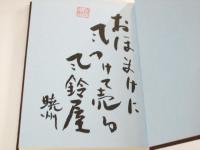 おほまけに
風つけて売る
風鈴屋
暁州